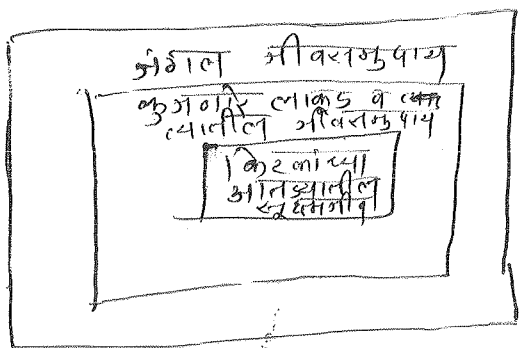 जंगल जीवसमुदाय
कुजणारे लाकड व
त्यातील जीवसमुदाय
किटकांच्या
आतड्यातील
सूक्ष्मजीव